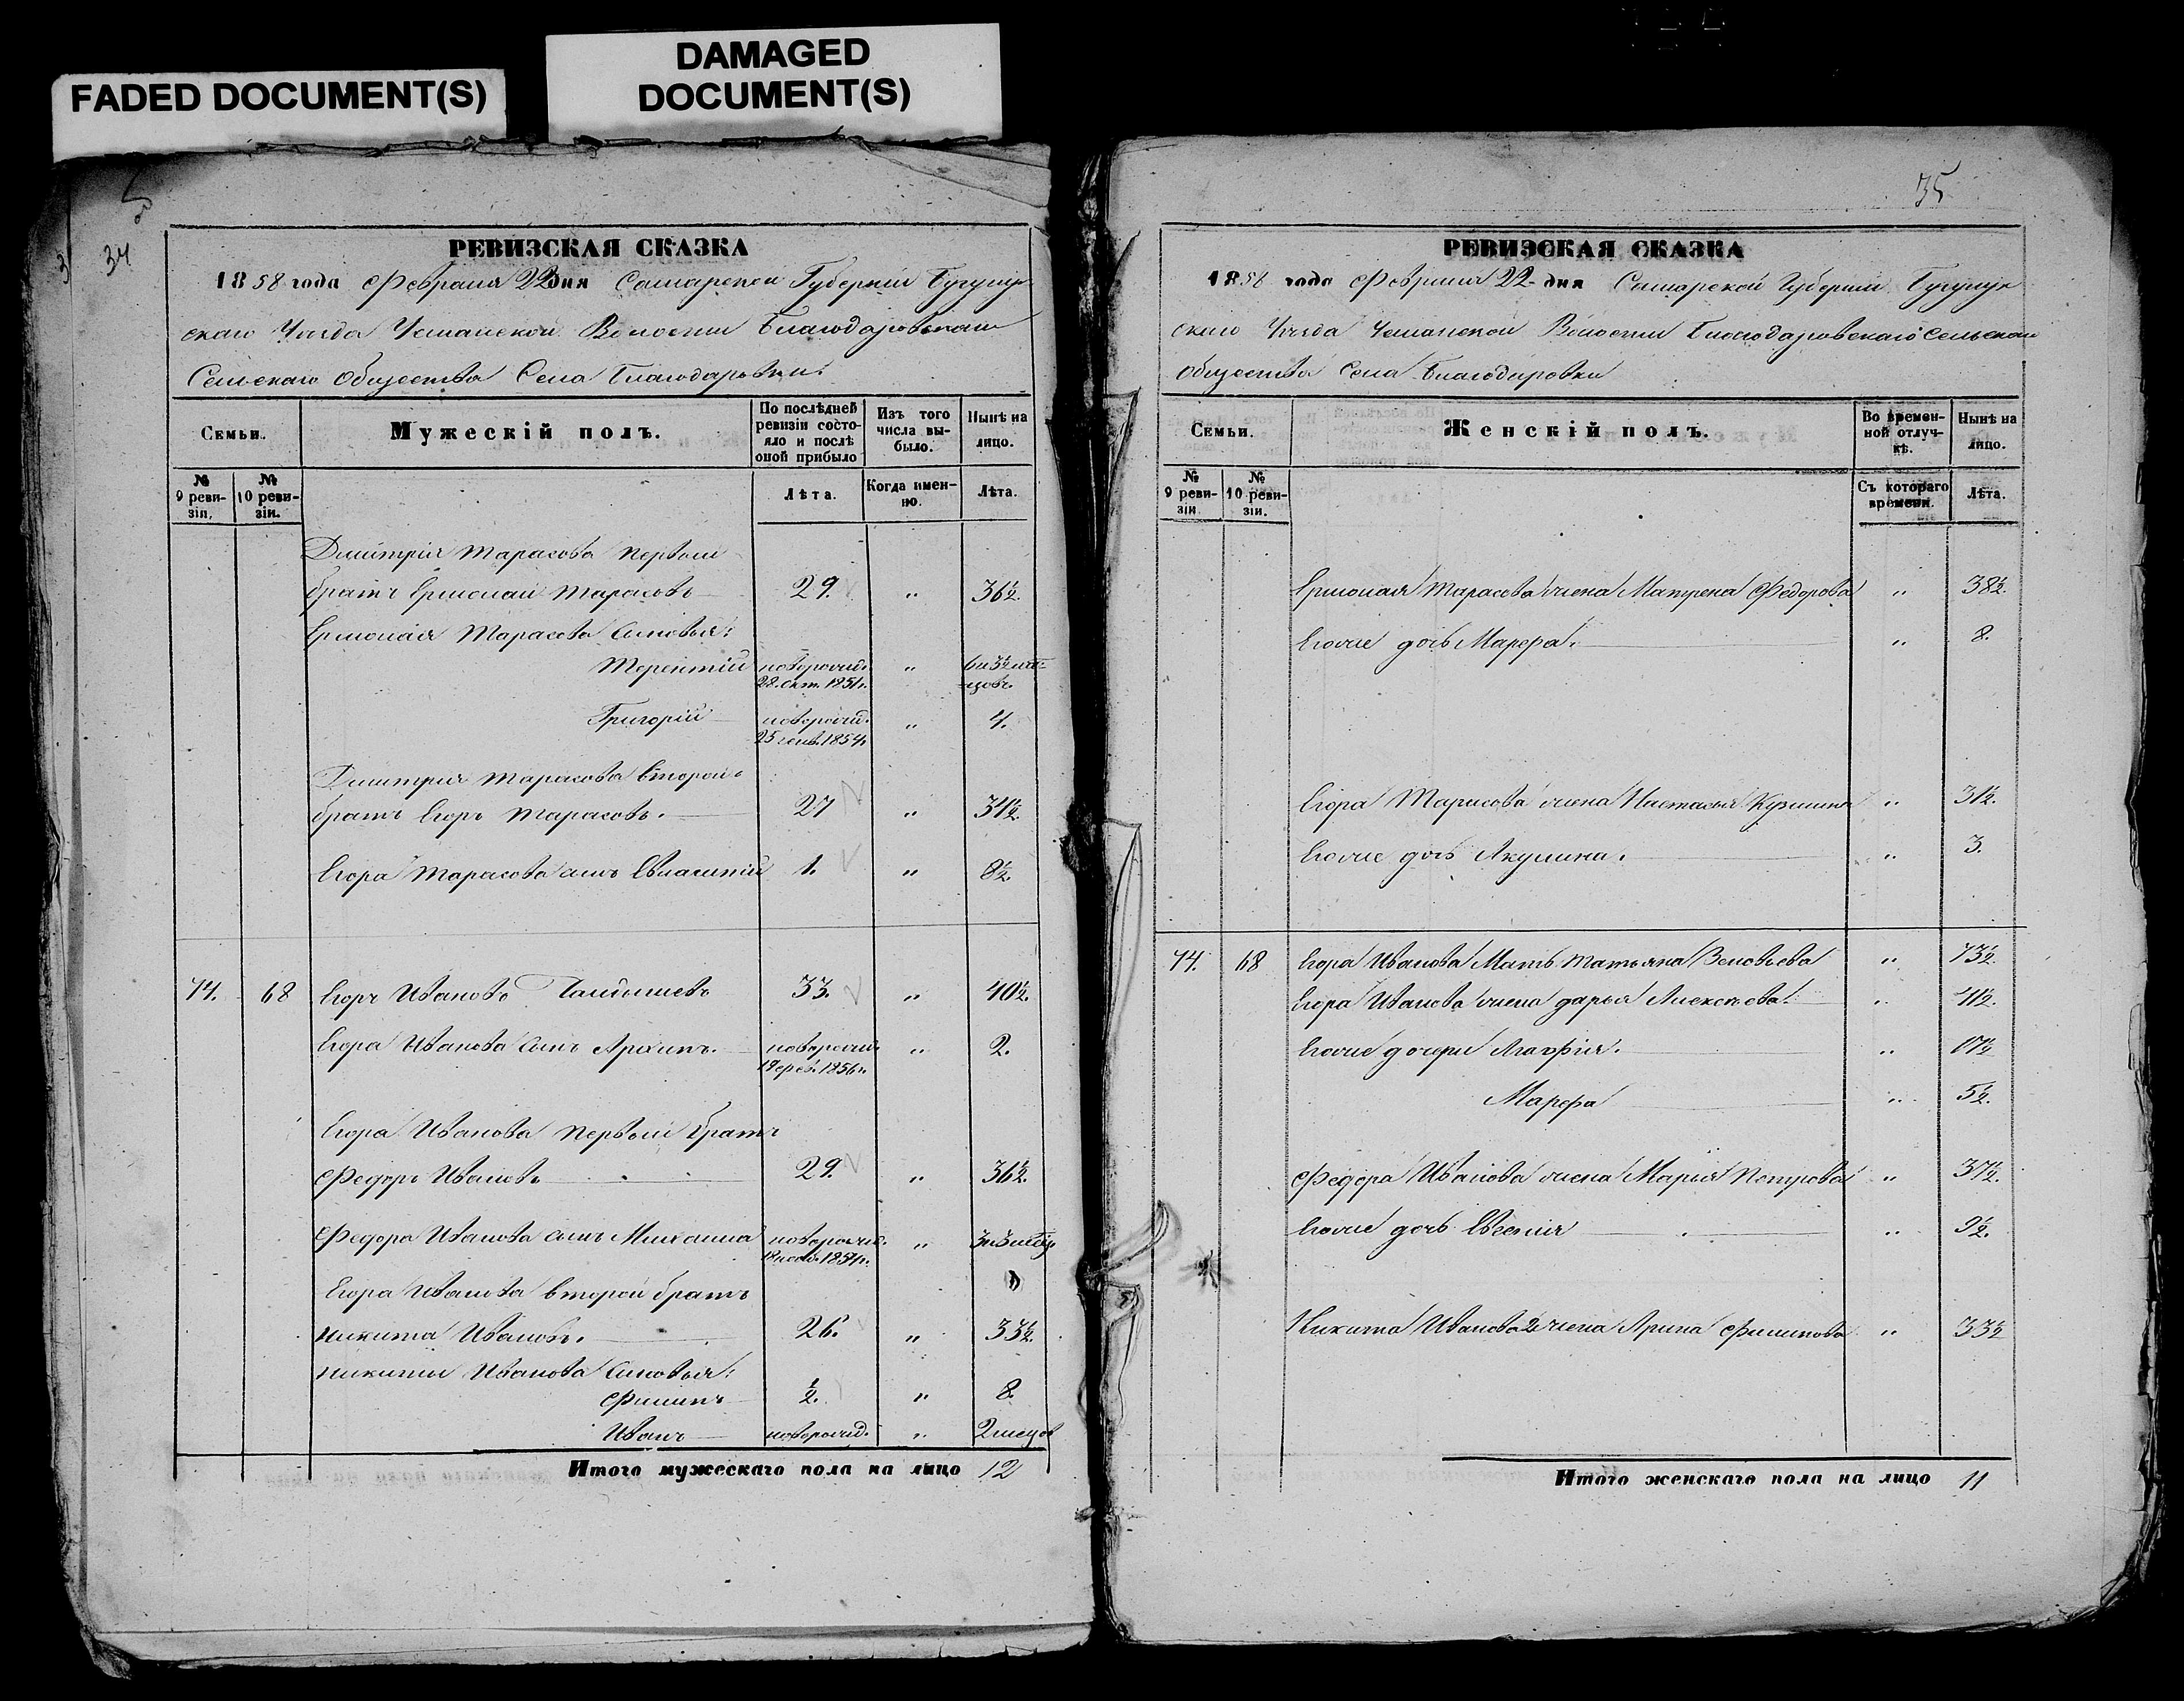 FADED DOCUMENT(S)
DAMAGED
DOCUMENT(S)
34
РЕВИЗСКАЯ СКАЗКА
1858 года Февраля 22 дня Самарской Губернiи Бугурус
скаго Уѣзда Волости Благодаровскаго
Сельскаго Общества Села Благодаровки
Семьи.
Мужескій полъ.
По послѣдней ревизіи состояло и послѣ оной прибыло
Изъ того числа выбыло.
Нынѣ на лицо.
№ 9 ревизіи.
№ 10 ревизіи.
Лѣта.
Когда именно.
Лѣта.
Дмитрія Тарасова первый
братъ Ермолай Тарасовъ 29. " 36½.
Ермолая Тарасова Сыновья:
Терентій новорожд. " 6 и 3½ мѣ-
28. окт. 1851г. -яцовъ.
Григорій новорожд. " 4.
25 генв. 1854г.
Дмитрія Тарасова второй
братъ Егоръ Тарасовъ. 27 " 34½.
Егора Тарасова сынъ 1. " 8½.
74. 68 Егоръ Ивановъ 33. " 40½.
Егора Иванова сынъ Архипъ. новорожд. " 2.
1856г.
Егора Иванова первый братъ
Федоръ Ивановъ 29. " 36½.
Федора Иванова сынъ Михаила новорожд. " 3 и 3 мѣсяц.
18 нояб. 1854г.
Егора Иванова второй братъ
Никита Ивановъ. 26. " 33½.
Никиты Иванова Сыновья:
Филипъ ½. " 8.
Иванъ новорожд. " 2 месцов
Итого мужескаго пола на лицо 12
35
РЕВИЗСКАЯ СКАЗКА
1858 года Февраля 22 дня Самарской Губернiи Бугурус
скаго Уѣзда Волости Благодаровскаго Сельскаго
Общества Села Благодаровки
Семьи.
Женскій полъ.
Во временной отлучкѣ.
Нынѣ на лицо.
№ 9 ревизіи
№ 10 ревизіи.
Съ котораго времени.
Лѣта.
Ермолая Тарасова жена Матрена Федорова " 38½.
Егоже дочь Марфа. " 8.
Егора Тарасова жена Настасья Кузмина " 31½.
Егоже дочь Акулина. " 3.
74. 68 Егора Иванова Мать Татьяна Зеновьева " 73½.
Егора Иванова жена Дарья Алексѣева. " 41½.
Егоже дочери Агафія. " 17½
Марфа " 5½.
Федора Иванова жена Марья Петрова " 37½.
Егоже дочь Евгенія " 9½.
Никита Иванова 2 жена Арина Филипова " 33½
Итого женскаго пола на лицо 11